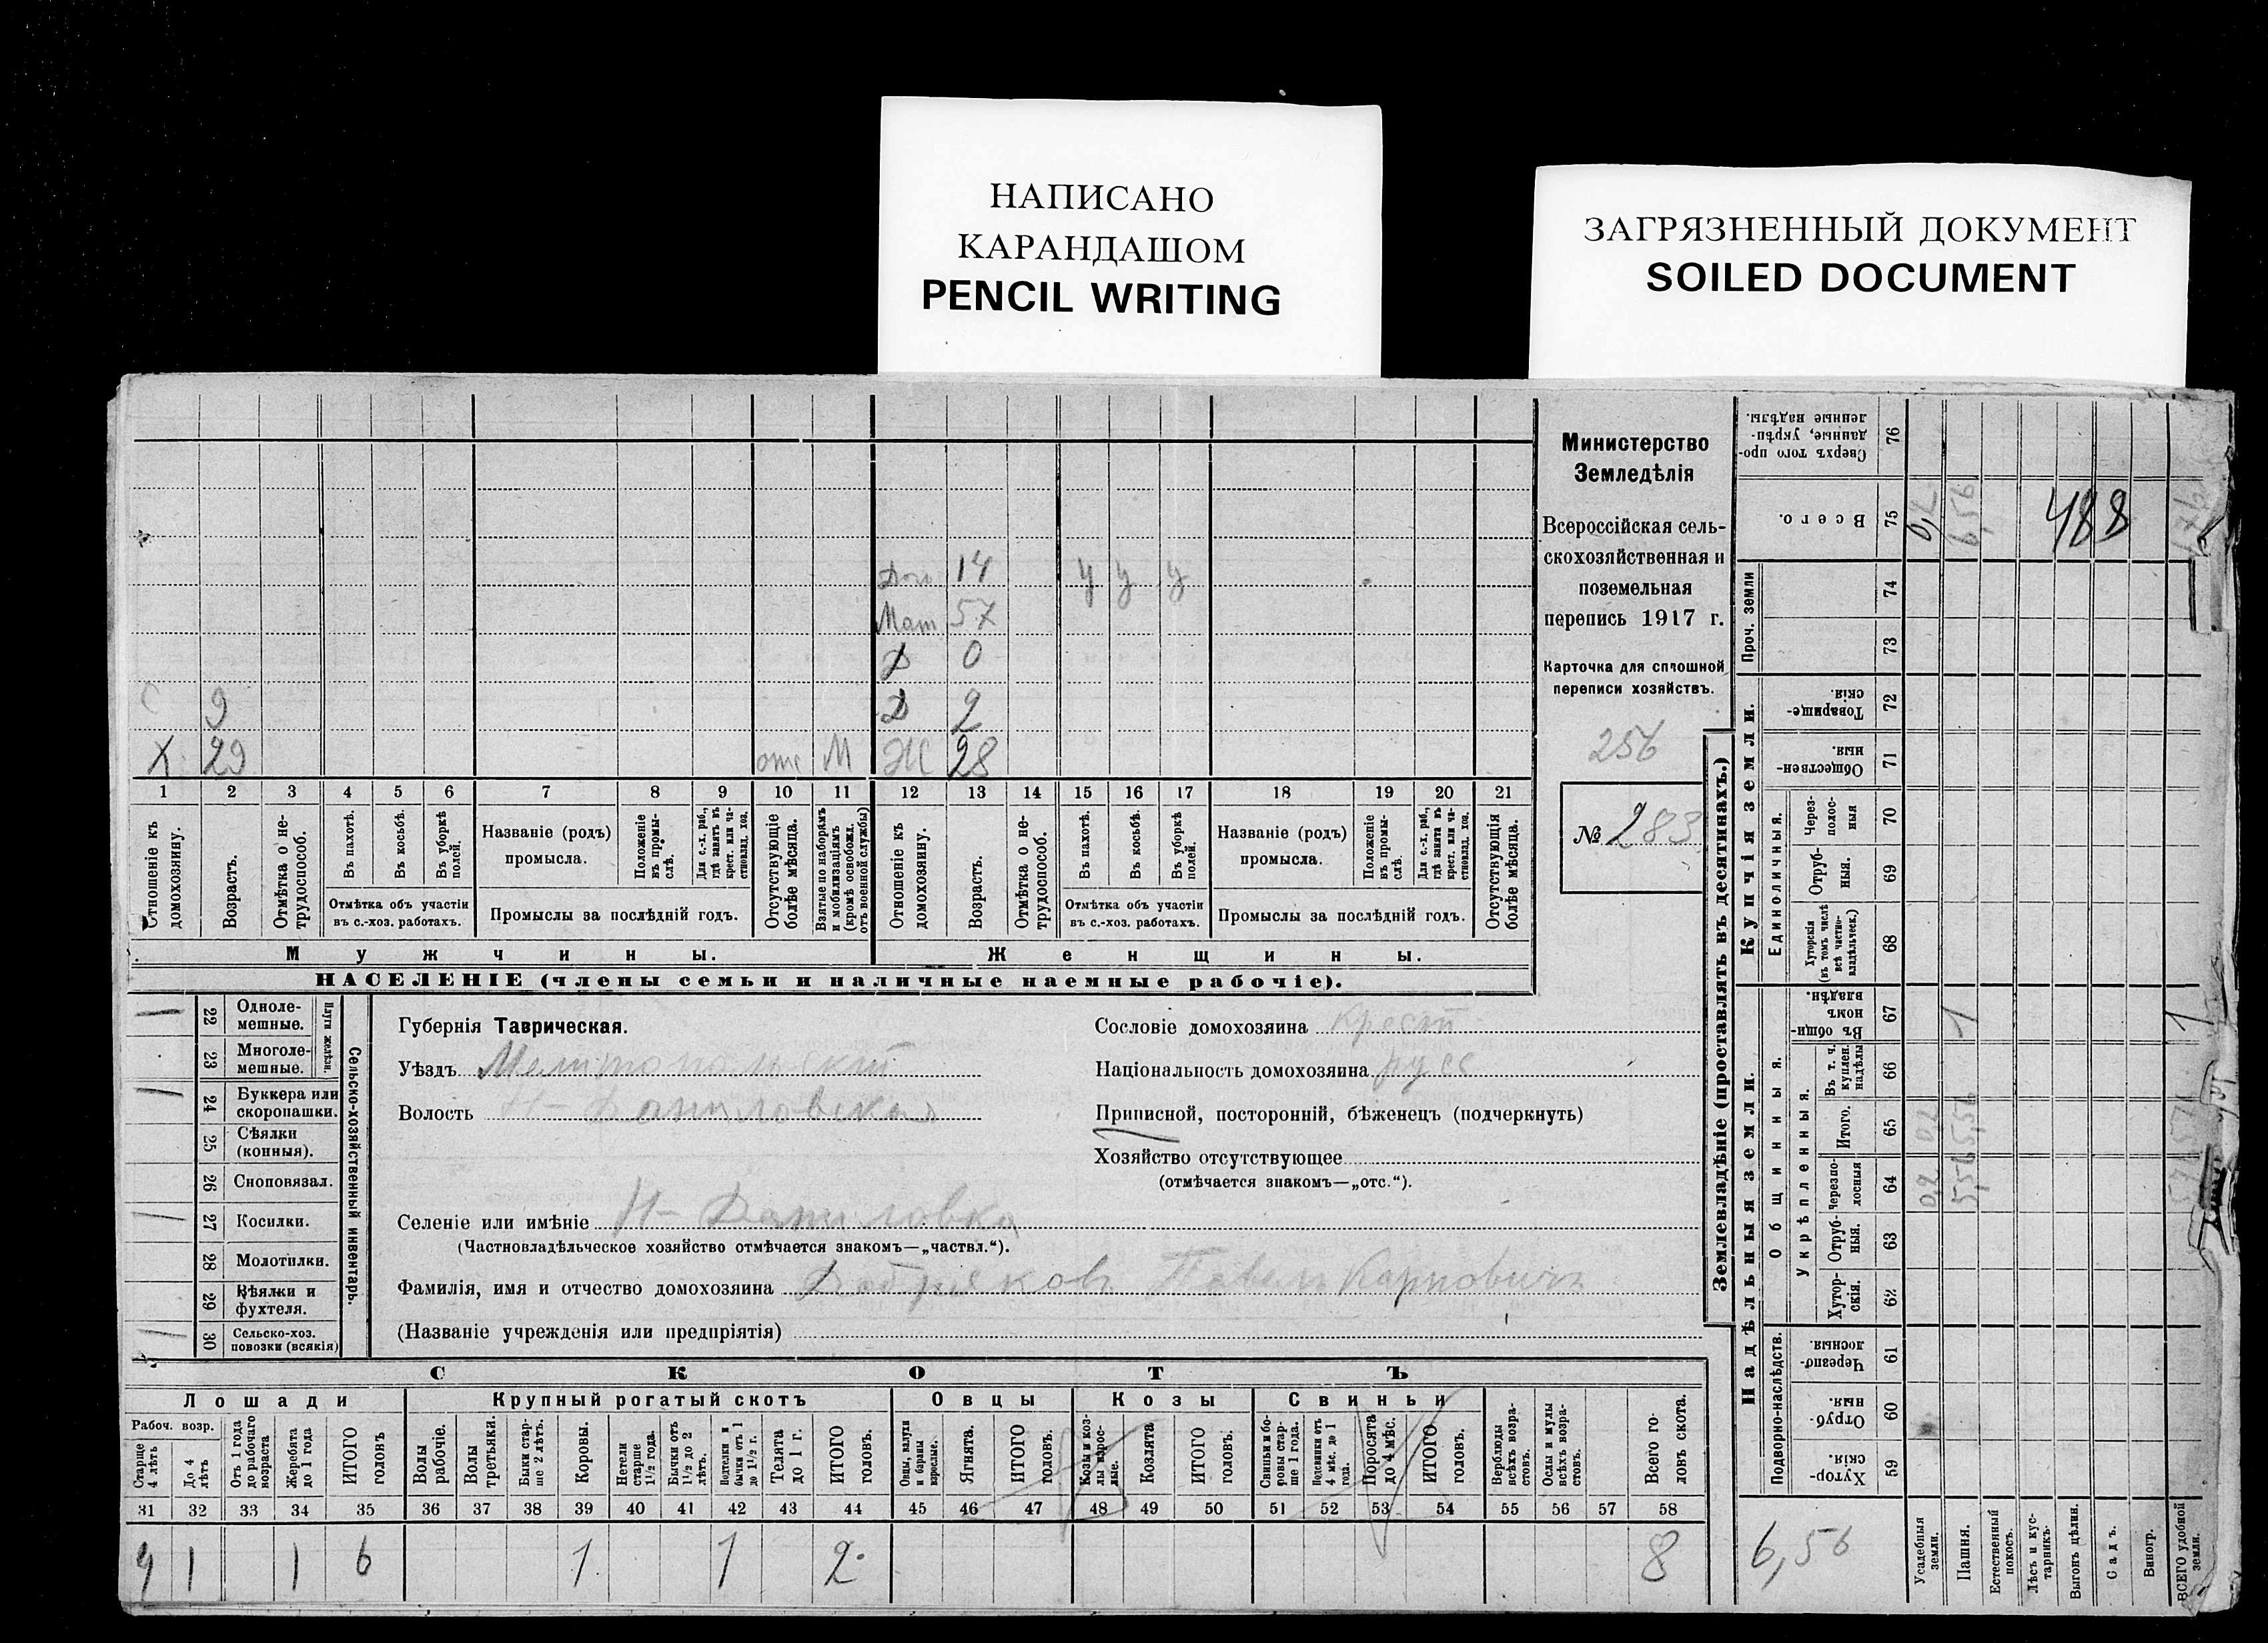 НАПИСАНО
КАРАНДАШОМ
PENCIL WRITING
ЗАГРЯЗНЕННЫЙ ДОКУМЕНТ
SOILED DOCUMENT
14 У У У
Мат 57
Д 0
9 Д 2
Х 29 отс М Ж 28
1 2 3 4 5 6 7 8 9 10 11 12 13 14 15 16 17 18 19 20 21
Отношеніе къ домохозяину.
Возрастъ.
Отмѣтка о не-трудоспособ.
Въ пахотѣ.
Въ косьбѣ.
Въ уборкѣ полей.
Отмѣтка объ участіи въ с.-хоз. работахъ.
Названіе (родъ) промысла.
Положеніе въ промы-слѣ.
Для с.-х. раб., гдѣ занятъ въ крест. или ча-стновлад. хоз.
Промыслы за послѣдній годъ.
Отсутствующіе болѣе мѣсяца.
Взятые по наборамъ и мобилизаціямъ (кромѣ освобожд. отъ военной службы)
Отношеніе къ домохозяину.
Возрастъ.
Отмѣтка о не-трудоспособ.
Въ пахотѣ.
Въ косьбѣ.
Въ уборкѣ полей.
Отмѣтка объ участіи въ с.-хоз. работахъ.
Названіе (родъ) промысла.
Положеніе въ промы-слѣ.
Для с.-х. раб., гдѣ занята въ крест. или ча-стновлад. хоз.
Промыслы за послѣдній годъ.
Отсутствующія болѣе мѣсяца.
Мужчины. Женщины.
НАСЕЛЕНІЕ (члены семьи и наличные наемные рабочіе).
Министерство
Земледѣлія
Всероссійская сель-
скохозяйственная и
поземельная
перепись 1917 г.
Карточка для сплошной
переписи хозяйствъ.
256
№ 283
22 Одноле-мешные.
23 Многоле-мешные.
Плуги желѣзн.
24 Буккера или скоропашки.
25 Сѣялки (конныя).
26 Сноповязал.
27 Косилки.
28 Молотилки.
29 Вѣялки и фухтеля.
30 Сельско-хоз. повозки (всякія)
Сельско-хозяйственный инвентарь.
Губернія Таврическая.
Уѣздъ Мелитопольскій
Волость Н-Даниловская
Сословіе домохозяина крест
Національность домохозяина русс
Приписной, посторонній, бѣженецъ (подчеркнуть)
Хозяйство отсутствующее
(отмѣчается знакомъ—„отс.“).
Селеніе или имѣніе Н-Даниловка
(Частновладѣльческое хозяйство отмѣчается знакомъ—„частвл.“).
Фамилія, имя и отчество домохозяина Павелъ Карповичъ
(Названіе учрежденія или предпріятія)
СКОТЪ
Лошади Крупный рогатый скотъ Овцы Козы Свиньи
Рабоч. возр.
Старше 4 лѣтъ
До 4 лѣтъ
Отъ 1 года до рабочаго возраста
Жеребята до 1 года
ИТОГО головъ
Волы рабочіе.
Волы третьяки.
Быки стар-ше 2 лѣтъ.
Коровы.
Нетели старше 1½ года.
Бычки отъ 1½ до 2 лѣтъ.
Подтелки и бычки отъ 1 до 1½ г.
Телята до 1 г.
ИТОГО головъ.
Овцы, валухи и бараны взрослые.
Ягнята.
ИТОГО головъ.
Козы и коз-лы взрос-лые.
Козлята
ИТОГО головъ.
Свиньи и бо-ровы стар-ше 1 года.
Подсвинки отъ 4 мѣс. до 1 года.
Поросята до 4 мѣс.
ИТОГО головъ.
Верблюды всѣхъ возра-стовъ.
Ослы и мулы всѣхъ возра-стовъ.
Всего го-ловъ скота.
31 32 33 34 35 36 37 38 39 40 41 42 43 44 45 46 47 48 49 50 51 52 53 54 55 56 57 58
4 1 1 6 1 1 2 8
Землевладѣніе (проставлять въ десятинахъ.)
Сверхъ того про-данные, укрѣп-ленные надѣлы. 76
Всего. 75 0,2 6,56 488
Проч. земли 74 73
Купчія земли.
Товарище-скія. 72
Обществен-ныя. 71
Единоличныя.
Через-полос-ныя 70
Отруб-ныя. 69
Хуторскія (въ томъ числѣ всѣ частно-владѣльческ.) 68
Надѣльныя земли.
Общинныя.
Въ общин-номъ владѣн. 67 1 1
Укрѣпленныя.
Въ т. ч. куплен. надѣлы 66
Итого. 65 0,2 5,56
Черезпо-лосныя 64 0,2 5,56
Отруб-ныя. 63
Хутор-скія. 62
Подворно-наслѣдств.
Черезпо-лосныя 61
Отруб-ныя. 60
Хутор-скія. 59
6,56
Усадебныя земли.
Пашня.
Естественный покосъ.
Лѣсъ и кус-тарникъ.
Выгонъ дѣлин.
Садъ.
Виногр.
ВСЕГО удобной земли.